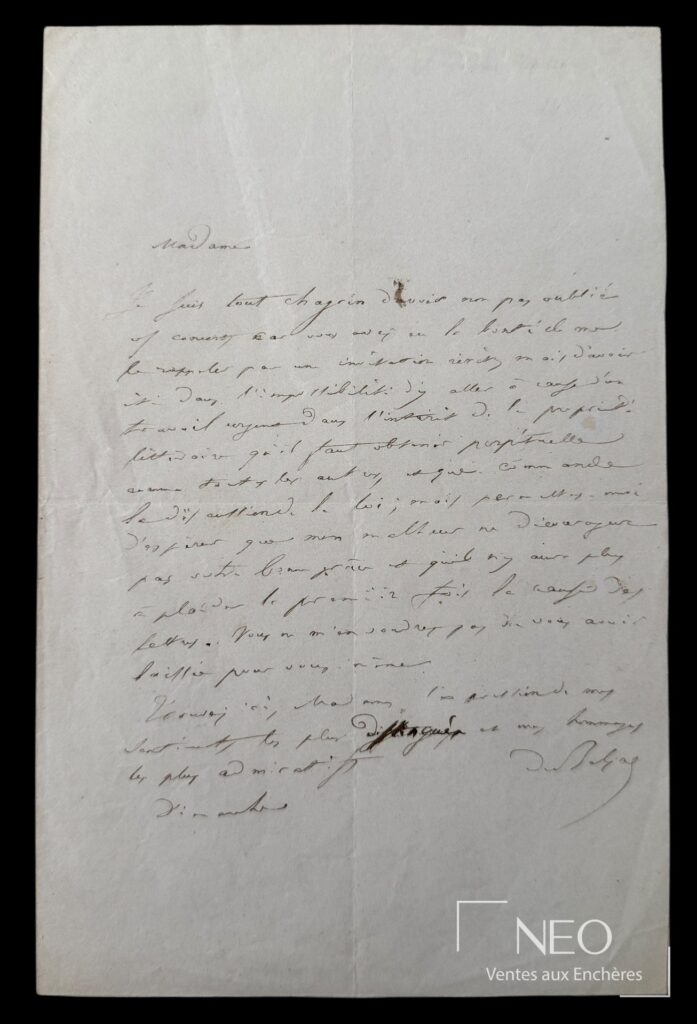 Madame
Je suis tout chagrin d'avoir non pas oublié
concert car vous avez eu la bonté de me
le rappeler par une invitation mais d'avoir
été dans l'impossibilité d'y aller à cause d'un
travail urgent dans l'intérêt de la propriété
littéraire qu'il faut obtenir perpétuelle
comme toutes les autres, et que commande
la discussion de la loi; mais permettez-moi
d'espérer que mon malheur ne découragera
pas votre bonne grâce et qu'il n'y aura plus
à plaider la première fois la cause des
lettres. Vous ne m'en voudrez pas de vous avoir
laissée pour vous même.
Trouvez ici, Madame, l'expression de mes
sentiments les plus distingués et mes hommages
les plus admiratifs
de Balzac
Dimanche
NEO
Ventes aux Enchères